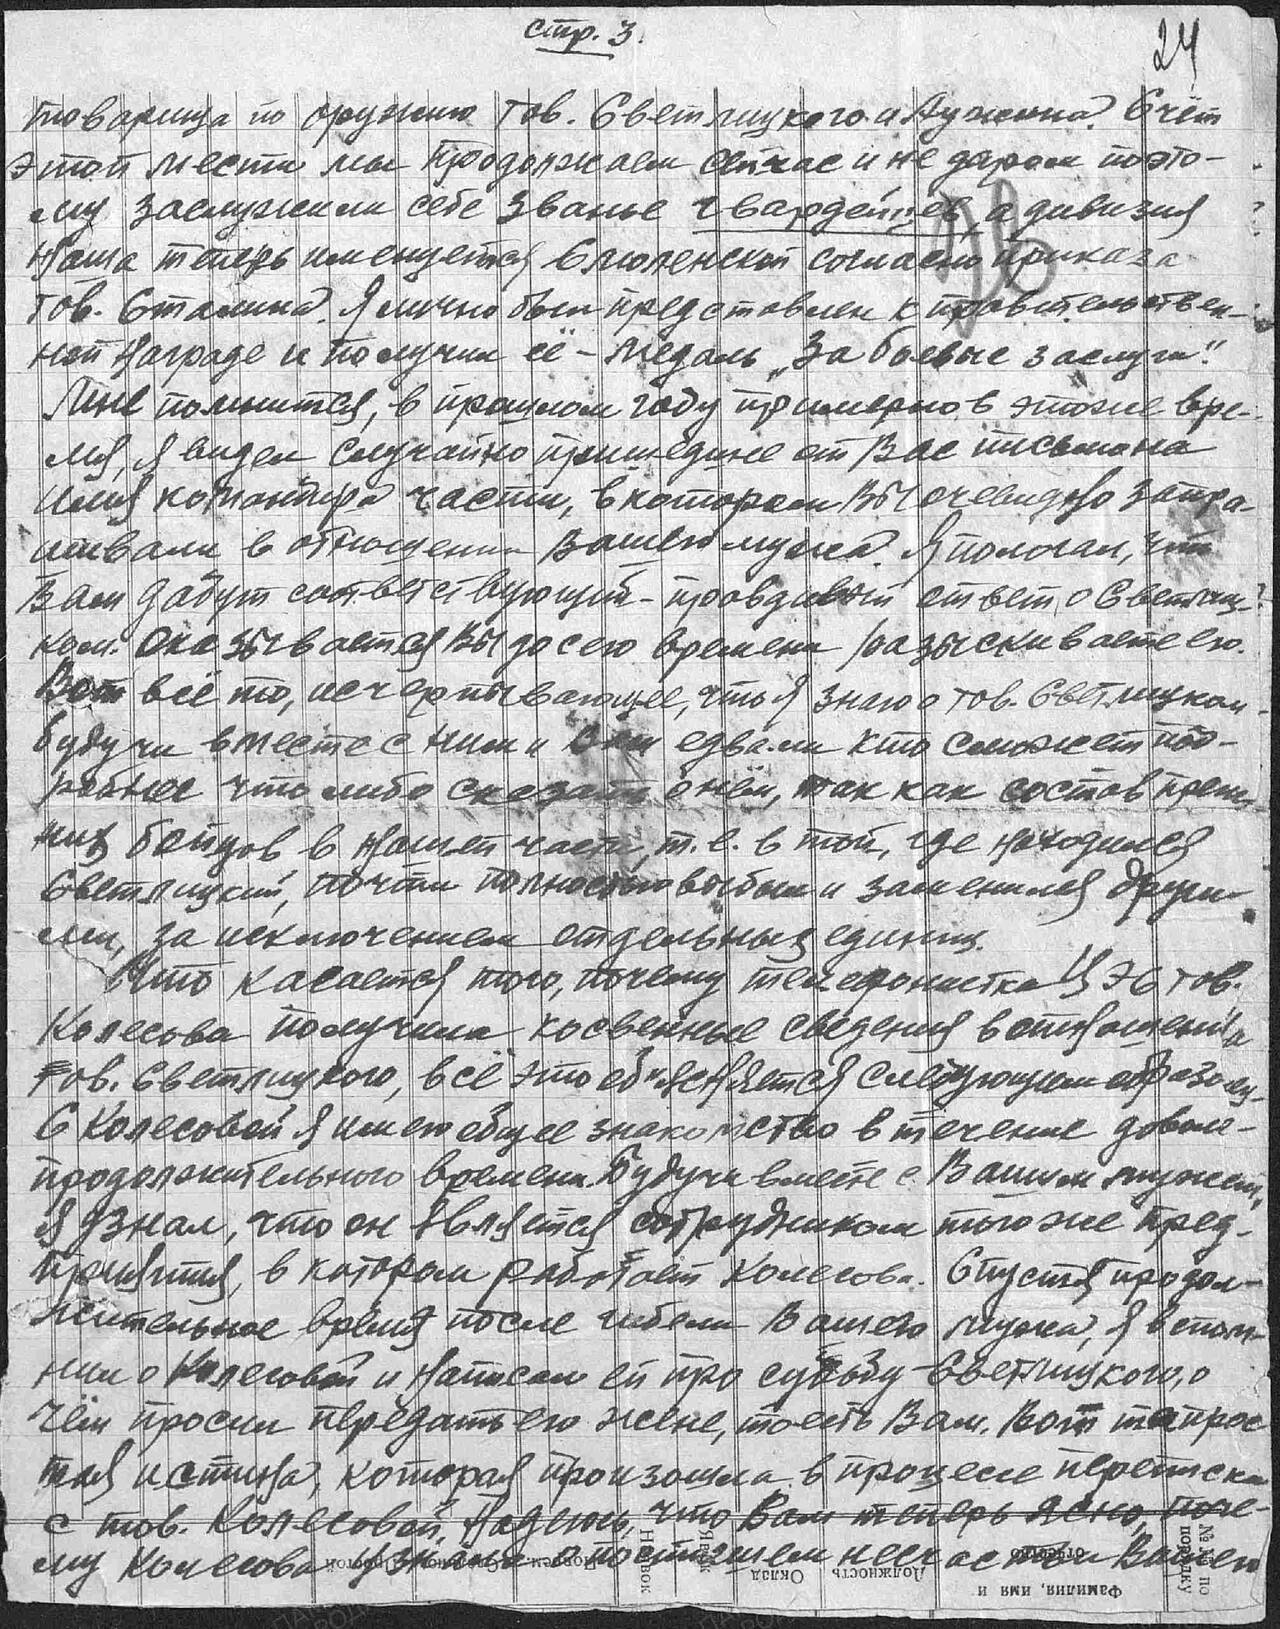 стр. 3.
24
26
товарища по оружию тов. Светлицкого и Лужина. Счёт
этой мести мы продолжаем сейчас и не даром поэто-
му заслужили себе званье гвардейцев, а дивизия
наша теперь именуется Смоленской согласно приказа
тов. Сталина. Я лично был представлен к правительствен-
ной награде и получил её – медаль „За боевые заслуги".
Мне помнится, в прошлом году примерно в это же вре-
мя, я видел случайно пришедшее от Вас письмо на
имя командира части, в котором Вы очевидно запра-
шивали в отношении Вашего мужа. Я полагал, что
Вам дадут соответствующий – правдивый ответ о Светлиц-
ком. Оказывается Вы до сего времени разыскиваете его.
Вот всё то, исчерпывающее, что я знаю о тов. Светлицком
будучи вместе с ним и едва ли кто сможет под-
робнее что либо сказать о нём, так как состав преж-
них бойцов в нашей части, т.е. в той, где находился
Светлицкий, почти полностью выбыл и заменился други-
ми, за исключением отдельных единиц.
Что касается того, почему телефонистка ЦЭС тов.
Колесова получила косвенные сведения в отношении
тов. Светлицкого, всё это объясняется следующим образом,
С Колесовой я имею общее знакомство в течение доволь-
продолжительного времени. Будучи вместе с Вашим мужем,
я узнал, что он является сотрудником того же пред-
приятия, в котором работает Колесова. Спустя продол-
жительное время после гибели Вашего мужа, я вспом-
нил о Колесовой и написал ей про судьбу Светлицкого, о
чём просил передать его жене, то есть Вам. Вот та прос-
тая истина, которая произошла в процессе переписки
с тов. Колесовой. Надеюсь, что Вам теперь ясно, поче-
му Колесова узнала о постигшем несчастьи Вашего
№№ по порядку
Фамилия, имя и отчество
Должность
Оклад